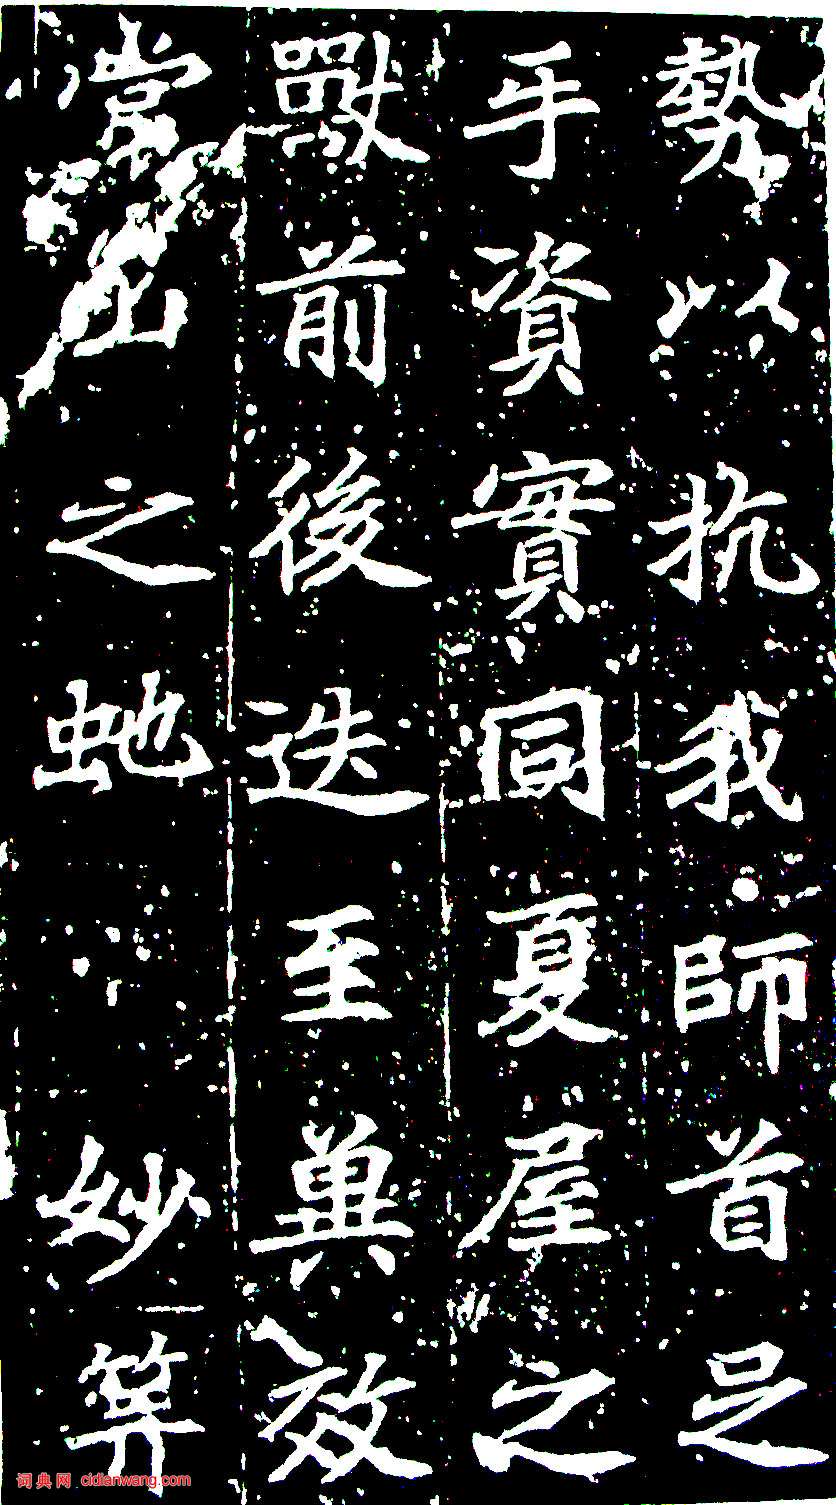 勢以抗我師首足
手資實同夏屋之
獸前後迭至冀效
常山之虵妙筭
词典网 cidianwang.com